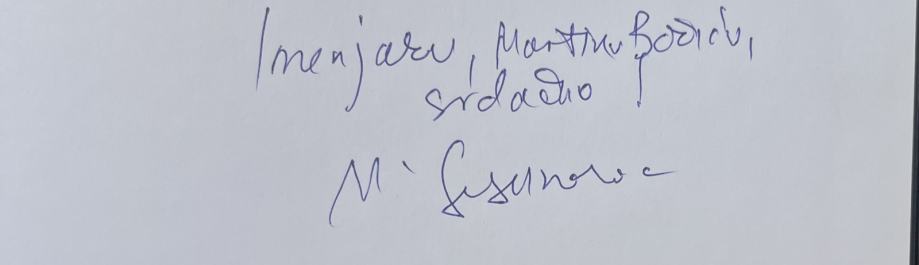 Imenjaku, Martinu Božiću,
srdačno!
M.